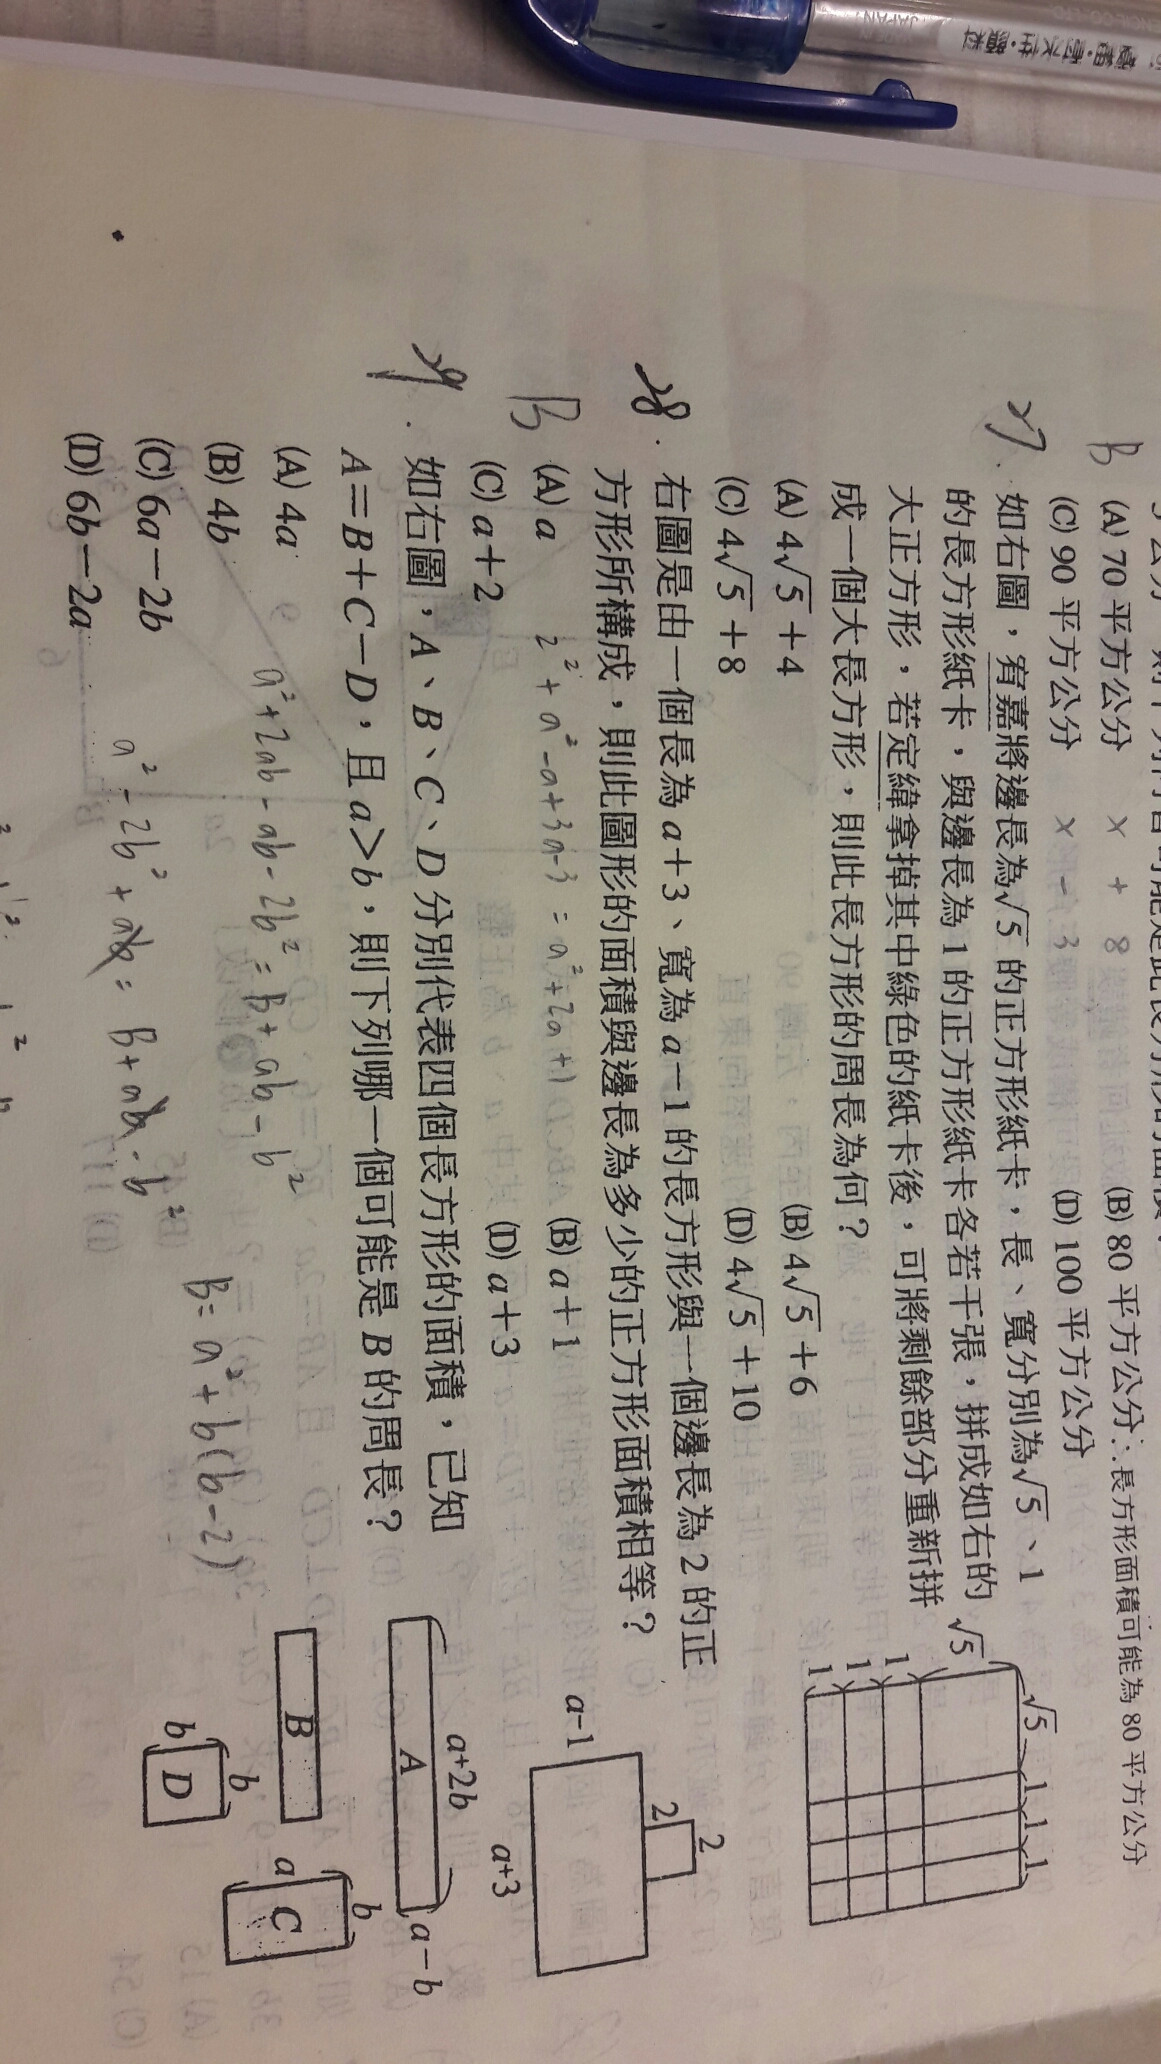 B
(A) 70 平方公分
(B) 80 平方公分
∴長方形面積可能為 80 平方公分
(C) 90 平方公分
(D) 100 平方公分
x + 8
x - 3
27.
如右圖，宥嘉將邊長為√5 的正方形紙卡，長、寬分別為√5、1
的長方形紙卡，與邊長為 1 的正方形紙卡各若干張，拼成如右的
大正方形，若定緯拿掉其中綠色的紙卡後，可將剩餘部分重新拼
成一個大長方形，則此長方形的周長為何？
(A) 4√5+4
(B) 4√5+6
(C) 4√5+8
(D) 4√5+10
√5 1 1 1
√5
1
1
1
28.
右圖是由一個長為 a+3、寬為 a−1 的長方形與一個邊長為 2 的正
方形所構成，則此圖形的面積與邊長為多少的正方形面積相等？
B
(A) a
(B) a+1
(C) a+2
(D) a+3
2²+a²-a+3a-3=a²+2a+1
2
2
a−1
a+3
29.
如右圖，A、B、C、D 分別代表四個長方形的面積，已知
A=B+C−D，且 a>b，則下列哪一個可能是 B 的周長？
(A) 4a
(B) 4b
(C) 6a−2b
(D) 6b−2a
a²+2ab-ab-2b²=B+ab-b²
a²-2b²+ab=B+ab-b²
B=a²+b(b-2)
a+2b
A
a−b
B
b
a
C
b
b
D